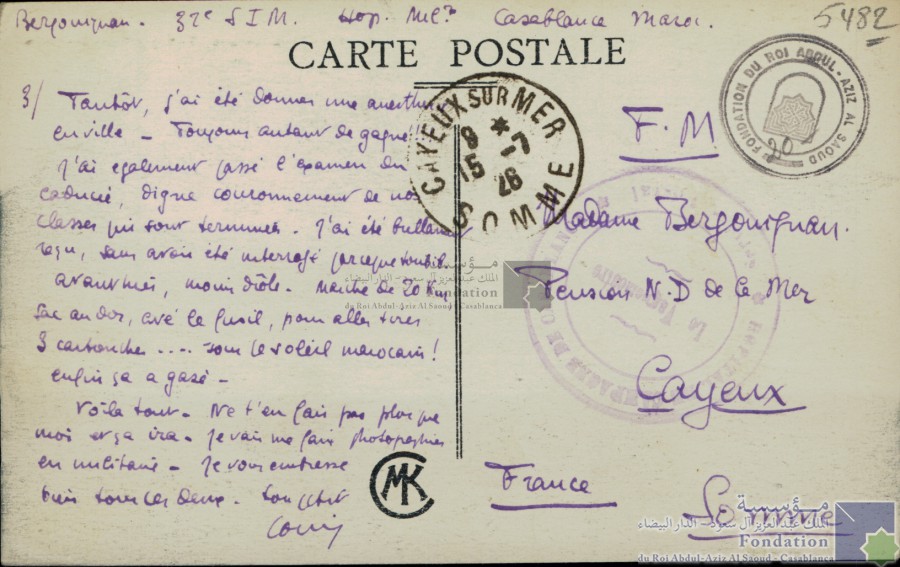 Bergouignan. 32e S I M. Hop. Milre Casablanca Maroc.
5482
CARTE POSTALE
3/ Tantôt, j'ai été donner une
en ville – Toujours autant de gagné!
J'ai également passé l'examen du
caducée, digne couronnement de nos
classes qui sont terminées. J'ai été
reçu, sans avoir été interrogé parce que
avant hier, moins drôle. Marche de 20 Km
Sac au dos, avé le fusil, pour aller tirer
3 cartouches .... sous le soleil marocain!
enfin ça a gazé –
Voilà tout – Ne t'en fais pas plus que
moi et ça ira – Je vais me faire photographier
en militaire – Je vous embrasse
tous les deux.
Louis
CAYEUX SUR MER
SOMME
9 - 7
15 26
FONDATION DU ROI ABDUL-AZIZ AL SAOUD
F. M.
Madame Bergouignan.
Pension N. D de la Mer
Cayeux
Somme
France
CMK
مؤسسة
الملك عبد العزيز آل سعود - الدار البيضاء
Fondation
du Roi Abdul-Aziz Al Saoud - Casablanca
مؤسسة
الملك عبد العزيز آل سعود - الدار البيضاء
Fondation
du Roi Abdul-Aziz Al Saoud - Casablanca